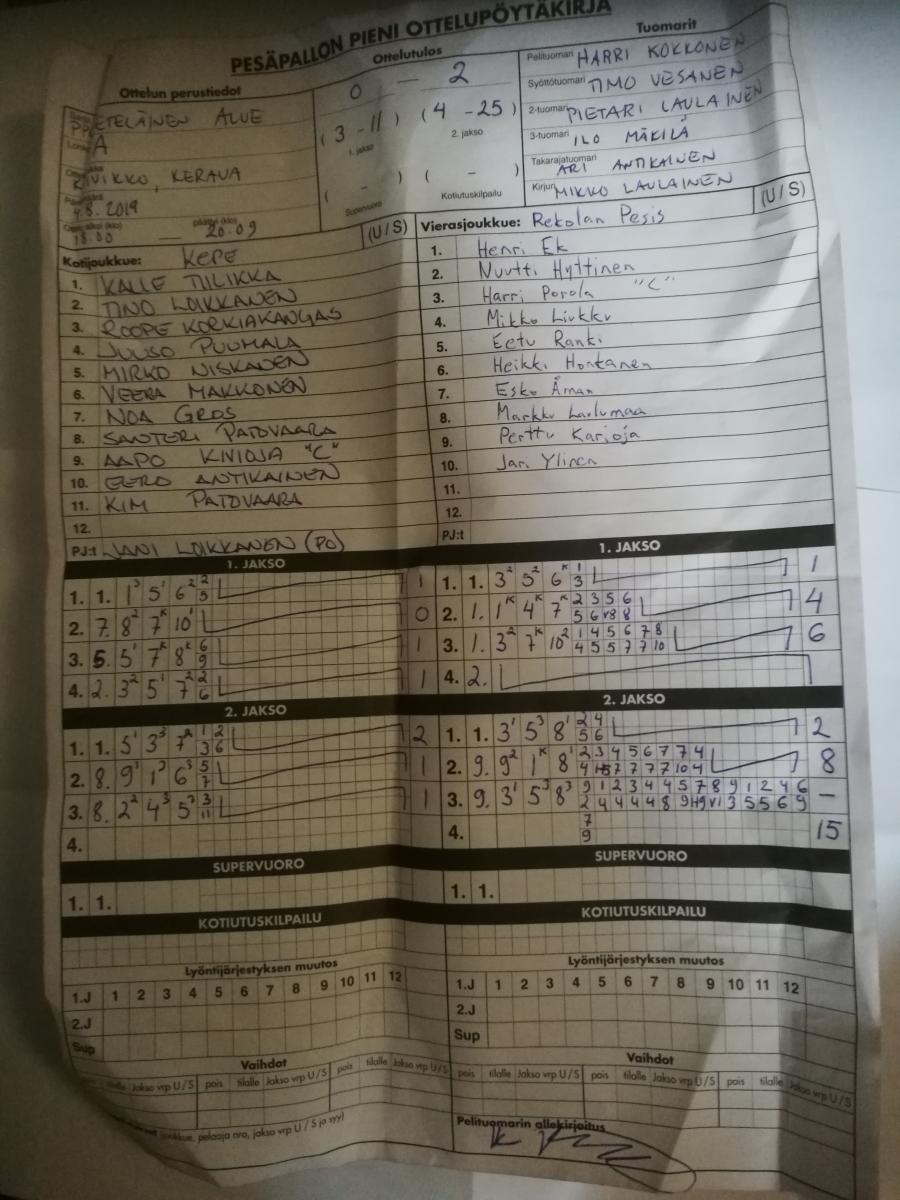 PESÄPALLON PIENI OTTELUPÖYTÄKIRJA
Ottelun perustiedot
ETELÄINEN ALUE
A
KIVIKKO, KERAVA
4.8. 2019
18.00 — päättyi (klo) 20.09
Ottelutulos
0 — 2
(3 - 11) (4 - 25)
1. jakso 2. jakso
( - ) ( - )
Supervuoro Kotiutuskilpailu
Tuomarit
Pelituomari HARRI KOKKONEN
Syöttötuomari TIMO VESANEN
2-tuomari PIETARI LAULAINEN
3-tuomari ILO MÄKILÄ
Takarajatuomari ARI ANTIKAINEN
Kirjuri MIKKO LAULAINEN
Kotijoukkue: KEPE (U/S)
1. KALLE TILIKKA
2. TINO LOIKKANEN
3. ROOPE KORKIAKANGAS
4. JUUSO PUUMALA
5. MIRKO NISKANEN
6. VEERA MAKKONEN
7. NOA GROS
8. SANTERI PATOVAARA
9. AAPO KIVIOJA "C"
10. EERO ANTIKAINEN
11. KIM PATOVAARA
12.
PJ:t JANI LOIKKANEN (PO)
Vierasjoukkue: Rekolan Pesis (U/S)
1. Henri Ek
2. Nuutti Hyttinen
3. Harri Porola "C"
4. Mikko Liukku
5. Eetu Ranki
6. Heikki Hontanen
7. Esko Åman
8. Markku Lailumaa
9. Perttu Karjoja
10. Jari Ylinen
11.
12.
PJ:t
1. JAKSO
1. 1. 1³ 5¹ 6² 2/5 1
2. 7. 8² 7ᴷ 10¹ 0
3. 5. 5¹ 7ᴷ 8ᴷ 6/9 1
4. 2. 3² 5¹ 7² 2/6 1
2. JAKSO
1. 1. 5¹ 3³ 7² 1/3 2/6 2
2. 8. 9¹ 1³ 6³ 5/7 1
3. 8. 2² 4³ 5³ 3/11 1
4.
1. JAKSO
1. 1. 3² 5² 6ᴷ 1/3 1
2. 1. 1ᴷ 4ᴷ 7ᴷ 2/5 3/6 5/v8 6/8 4
3. 1. 3² 7ᴷ 10² 1/4 4/5 5/5 6/7 7/7 8/10 6
4. 2.
2. JAKSO
1. 1. 3¹ 5³ 8¹ 2/5 4/6 2
2. 9. 9² 1ᴷ 8¹ 8
3. 9. 3¹ 5³ 8³ —
4. 7/9 15
SUPERVUORO
1. 1.
SUPERVUORO
1. 1.
KOTIUTUSKILPAILU
KOTIUTUSKILPAILU
Lyöntijärjestyksen muutos
1.J 1 2 3 4 5 6 7 8 9 10 11 12
2.J
Sup
Lyöntijärjestyksen muutos
1.J 1 2 3 4 5 6 7 8 9 10 11 12
2.J
Sup
Vaihdot
tilalle Jakso vrp U/S pois tilalle Jakso vrp U/S pois tilalle Jakso vrp U/S
Vaihdot
pois tilalle Jakso vrp U/S pois tilalle Jakso vrp U/S pois tilalle Jakso vrp U/S
(joukkue, pelaaja nro, jakso vrp U/S ja syy)
Pelituomarin allekirjoitus